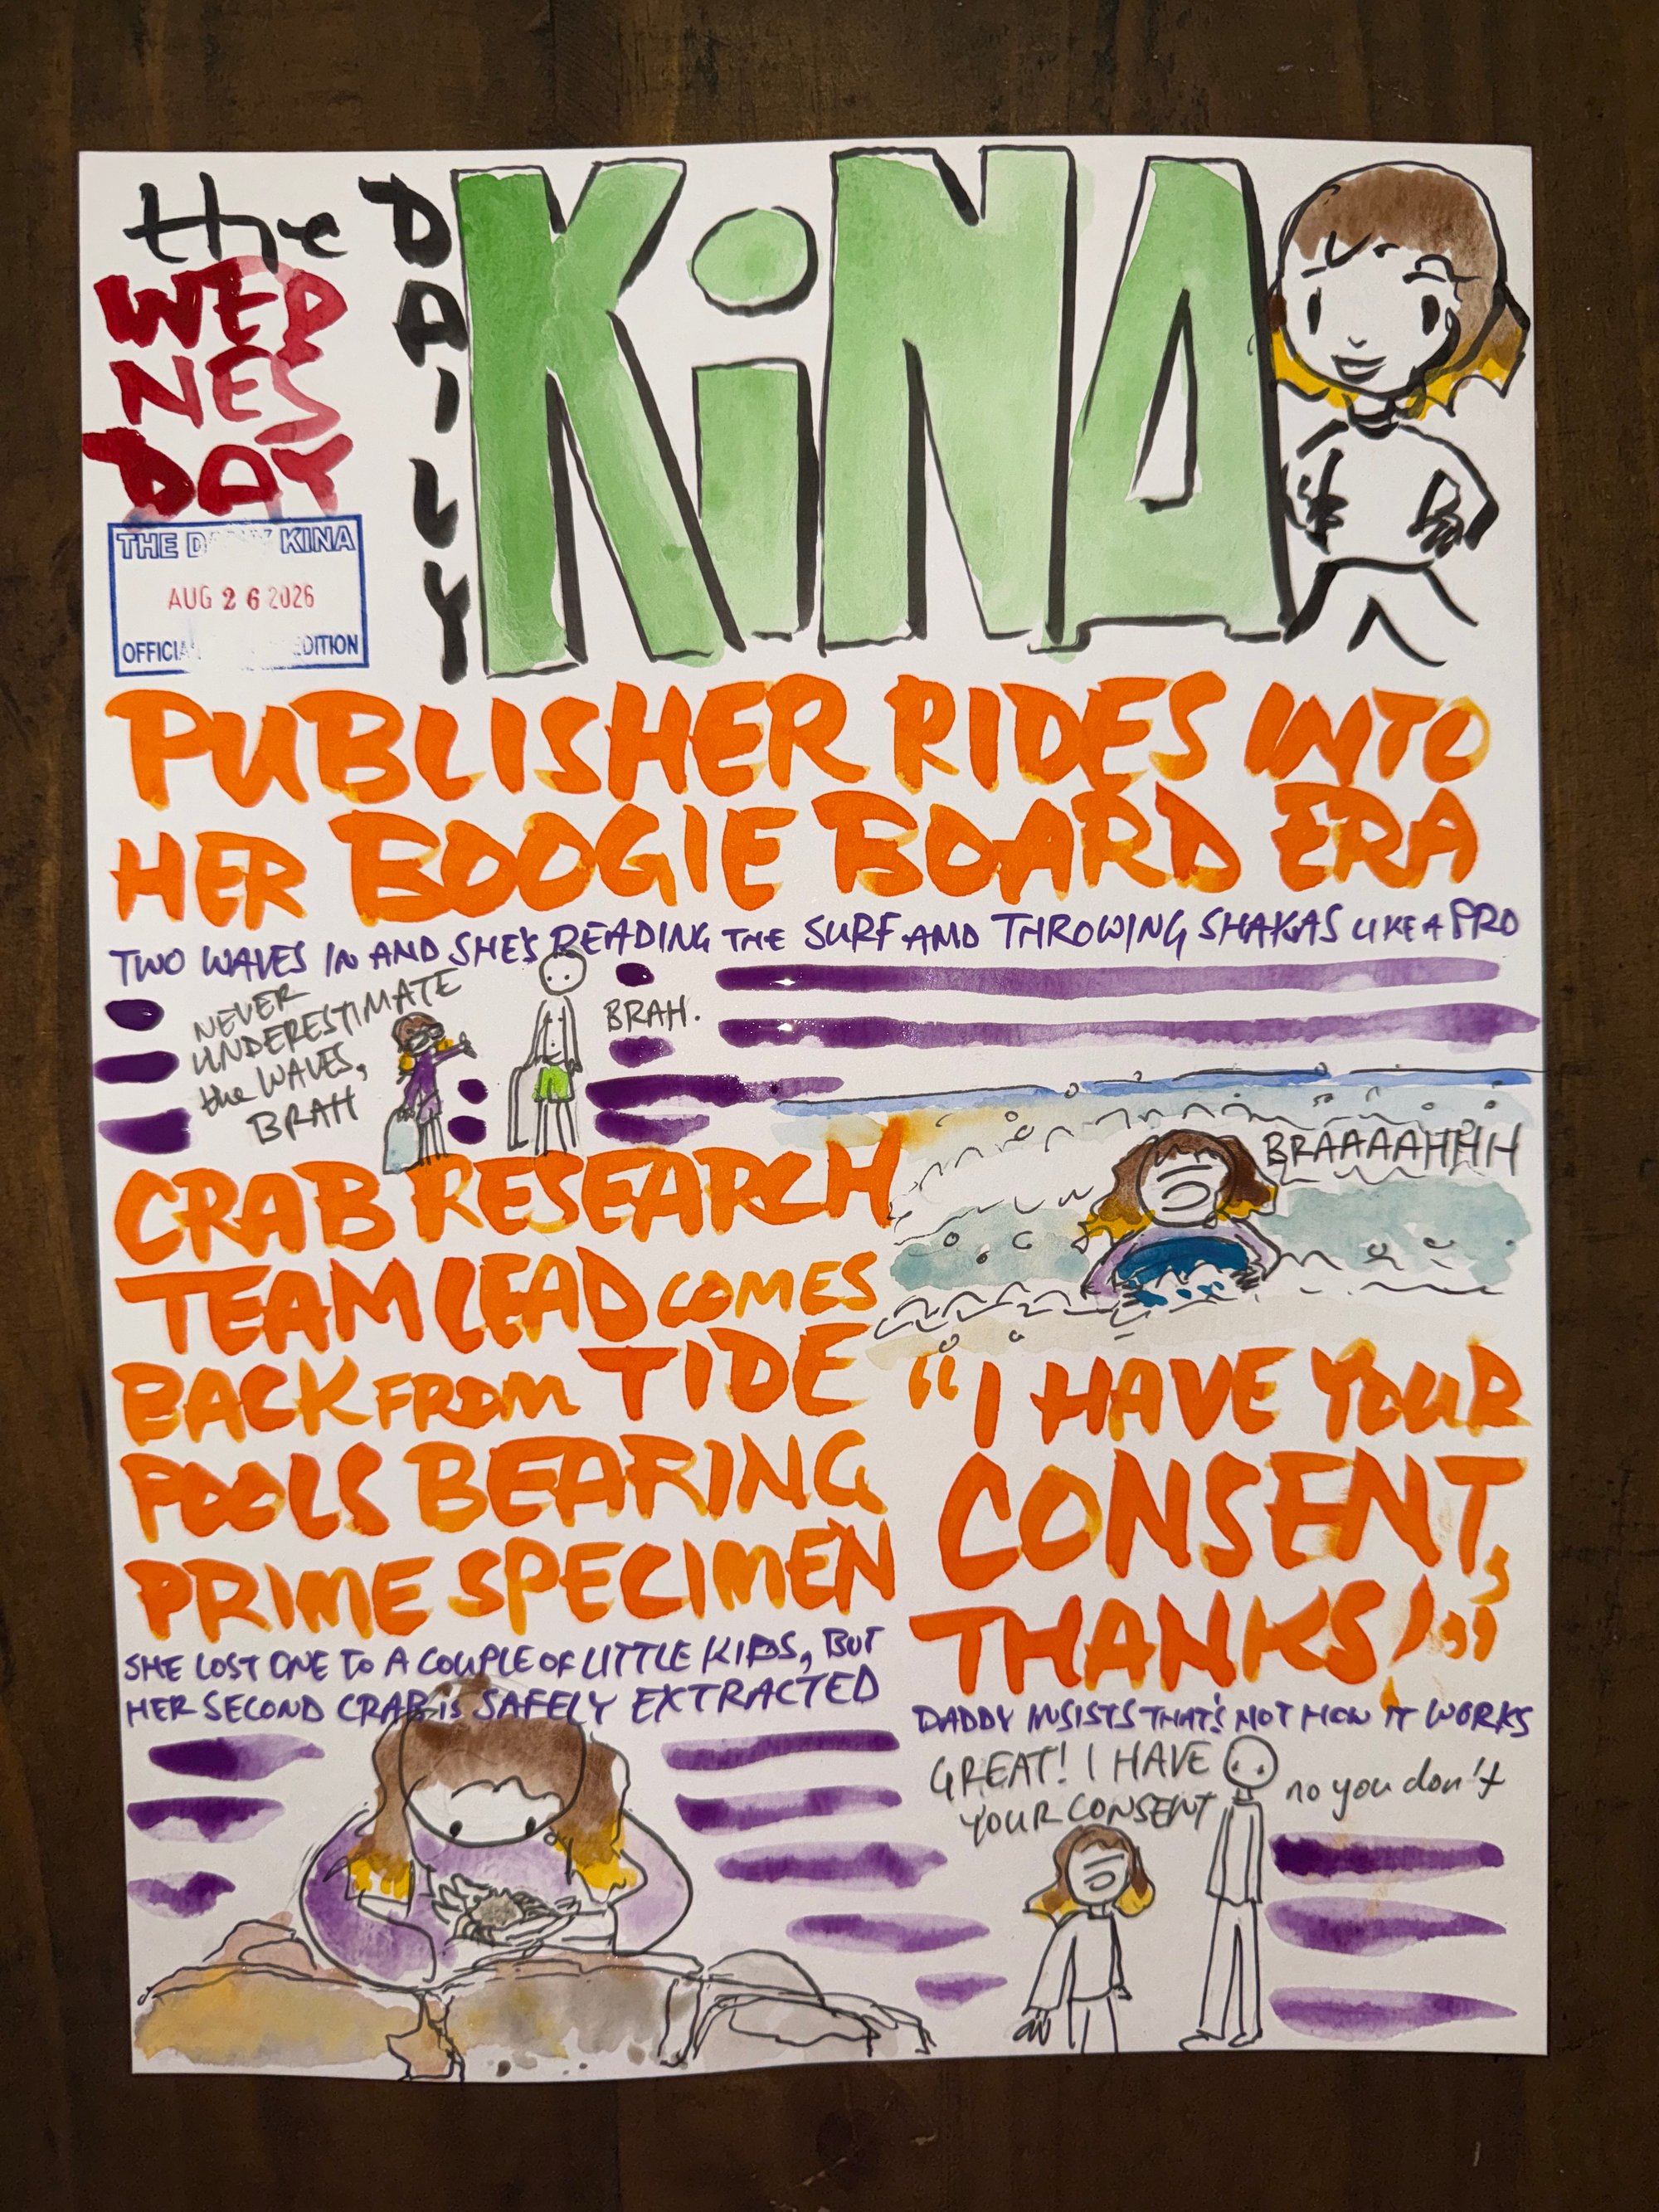 the
WED
NES
DAY
DAILY
KiNA
THE KINA
AUG 26 2026
EDITION
PUBLISHER RIDES INTO
HER BOOGIE BOARD ERA
TWO WAVES IN AND SHE'S READING THE SURF AND THROWING SHAKAS LIKE A PRO
NEVER
UNDERESTIMATE
the WAVES,
BRAH
BRAH.
BRAAAAHHH
CRAB RESEARCH
TEAM LEAD COMES
BACK FROM TIDE
POOLS BEARING
PRIME SPECIMEN
SHE LOST ONE TO A COUPLE OF LITTLE KIDS, BUT
HER SECOND CRAB is SAFELY EXTRACTED
"I HAVE YOUR
CONSENT,
THANKS!"
DADDY INSISTS THAT'S NOT HOW IT WORKS
GREAT! I HAVE
YOUR CONSENT
no you don't